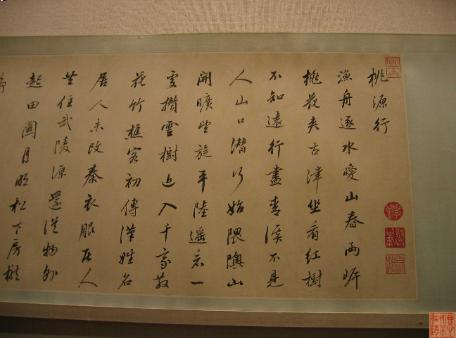 桃源行
漁舟逐水愛山春兩岸
桃花夾古津坐看紅樹
不知遠行盡青溪不見
人山口潛行始隈隩山
開曠望旋平陸遙看一
處攢雲樹近入千家散
花竹樵客初傳漢姓名
居人未改秦衣服居人
共住武陵源還從物外
起田園月明松下房櫳